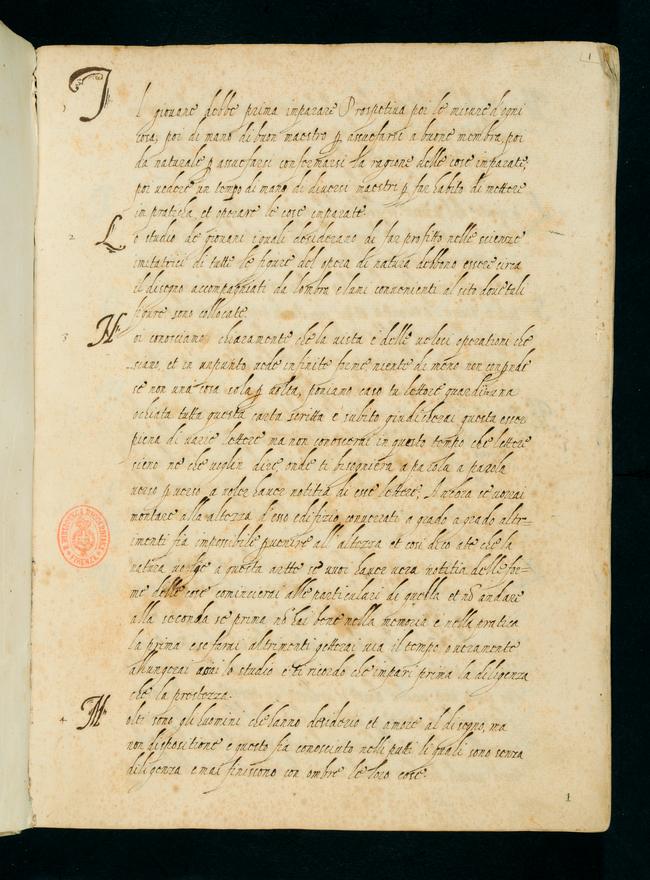 1
1
Il giovane debbe prima imparare Prospettiva poi le misure d'ogni
cosa, poi di mano di buon maestro p assuefarsi a buone membra, poi
da naturale p assuefarsi confermarsi la ragione delle cose imparate,
poi vedere un tempo di mano di diversi maestri p far habito di mettere
in praticha, et operare le cose imparate.
2
Lo studio de giovani i quali desiderano di far profitto nelle scienze
imitatrici di tutte le figure del opera di natura debbono essere circa
il disegno accompagniati da lombra e lumi convenienti al sito dove tali
figure sono collocate.
3
Noi conosciamo chiaramente che la vista è delle veloci operationi che
siano, et in un punto vede infinite forme niente di meno non compnde
se non una cosa sola p volta, poniamo caso tu lettore guardi in una
ochiata tutta questa carta scritta e subito giudicherai questa esser
piena di varie lettere ma non conoscerai in questo tempo che lettere
sieno ne che voglin dire, onde ti bisogniera a parola a parola
verso p verso a voler haver notitia di esse lettere, Ancora se vorrai
montare alla altezza d'esso edifizio converrati a grado a grado altri-
imenti fia impossibile pvenire all'altezza et cosi dico a te che la
natura volge a questa artte se vuoi haver vera notitia delle for-
me delle cose comincierai alle particulari di quella et nō andare
alla seconda se prima nō hai bene nella memoria e nella pratica
la prima e se farai altrimenti getterai via il tempo o veramente
allungerai assai lo studio e ti ricordo che impari prima la diligenza
che la prestezza.
4
Molti sono gli huomini che hanno desiderio et amore al disegno, ma
non dispositione e questo fia conosciuto nelli putti li quali sono senza
diligenza e mai finiscono con ombre le loro cose.
1